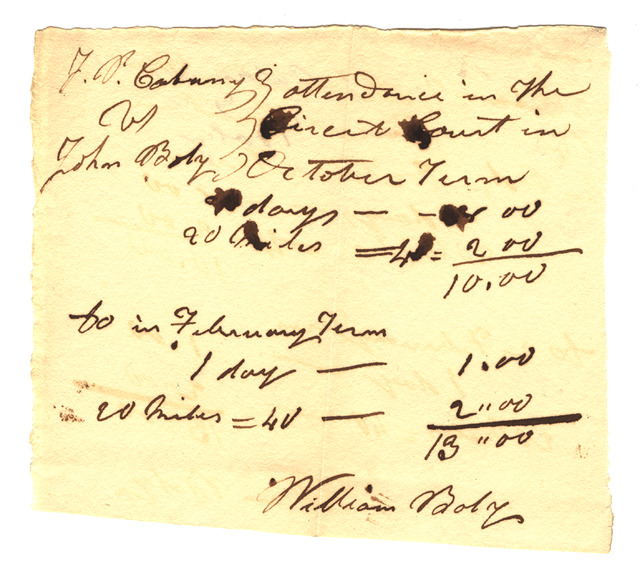 J. P. Cabany } attendance in the
vs } Circut Court in
John Boly } October Term
days — - 8 00
20 Miles = 40 = 2 00
10.00
to in February Term
1 day — 1.00
20 Miles = 40 — 2"00
13"00
William Boly